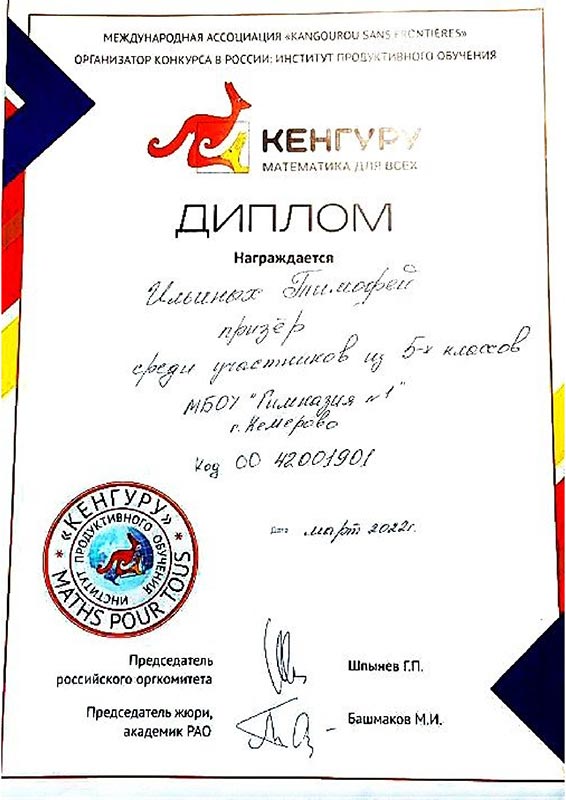 МЕЖДУНАРОДНАЯ АССОЦИАЦИЯ «KANGOUROU SANS FRONTIÈRES»
ОРГАНИЗАТОР КОНКУРСА В РОССИИ: ИНСТИТУТ ПРОДУКТИВНОГО ОБУЧЕНИЯ
КЕНГУРУ
МАТЕМАТИКА ДЛЯ ВСЕХ
ДИПЛОМ
Награждается
Ильиных Тимофей
призёр
среди участников из 5-х классов
МБОУ "Гимназия №1"
г. Кемерово
Код ОО 42001901
Дата март 2022г.
«КЕНГУРУ»
ИНСТИТУТ ПРОДУКТИВНОГО ОБУЧЕНИЯ
* MATHS POUR TOUS *
Председатель
российского оргкомитета
Шпынев Г.П.
Председатель жюри,
академик РАО
Башмаков М.И.